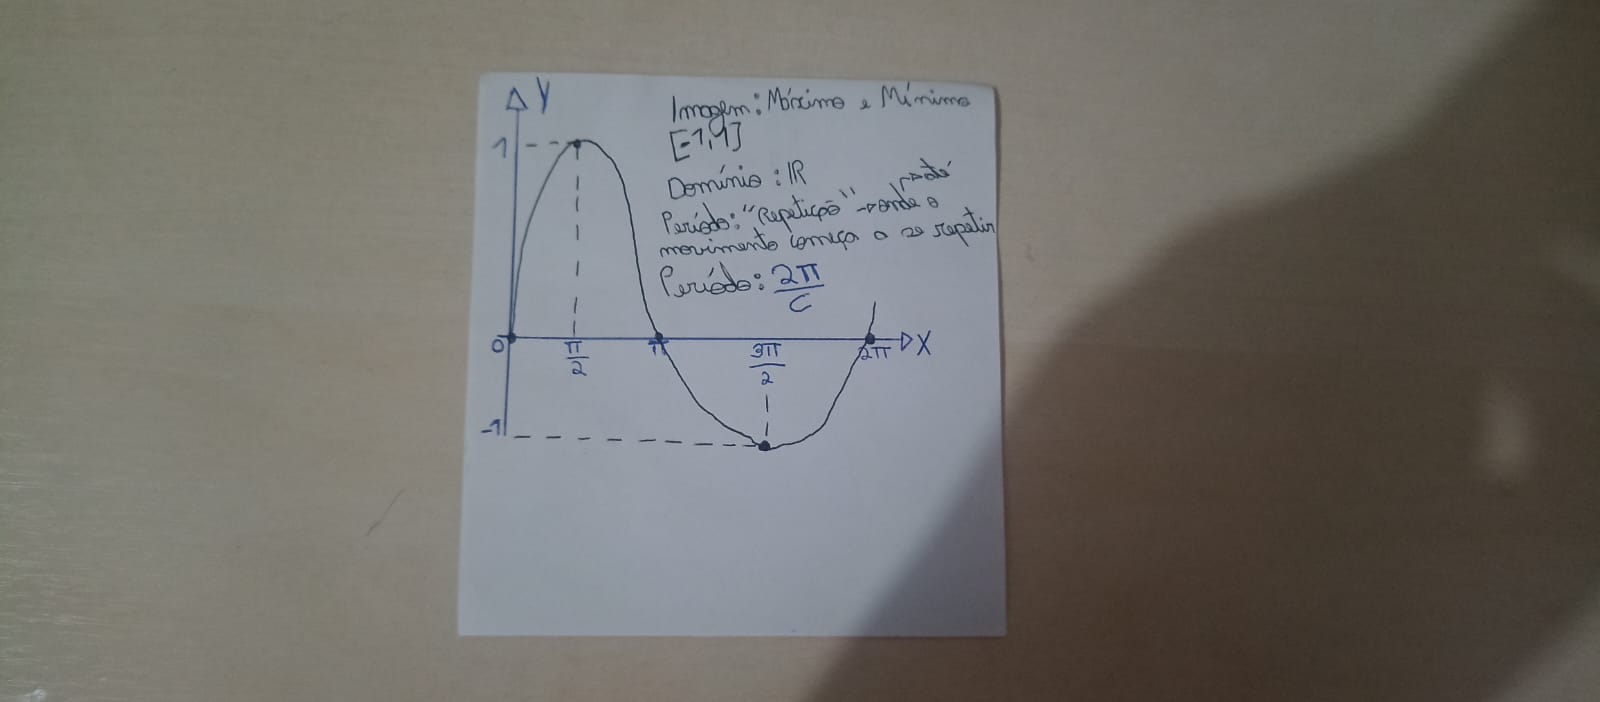 Y
Imagem: Máximo e Mínimo
1
[-1,1]
Domínio: IR
↳ até
Período: "Repetição" → onde o
movimento começa a se repetir
Período: 2π/C
0
π/2
π
3π/2
2π
X
-1